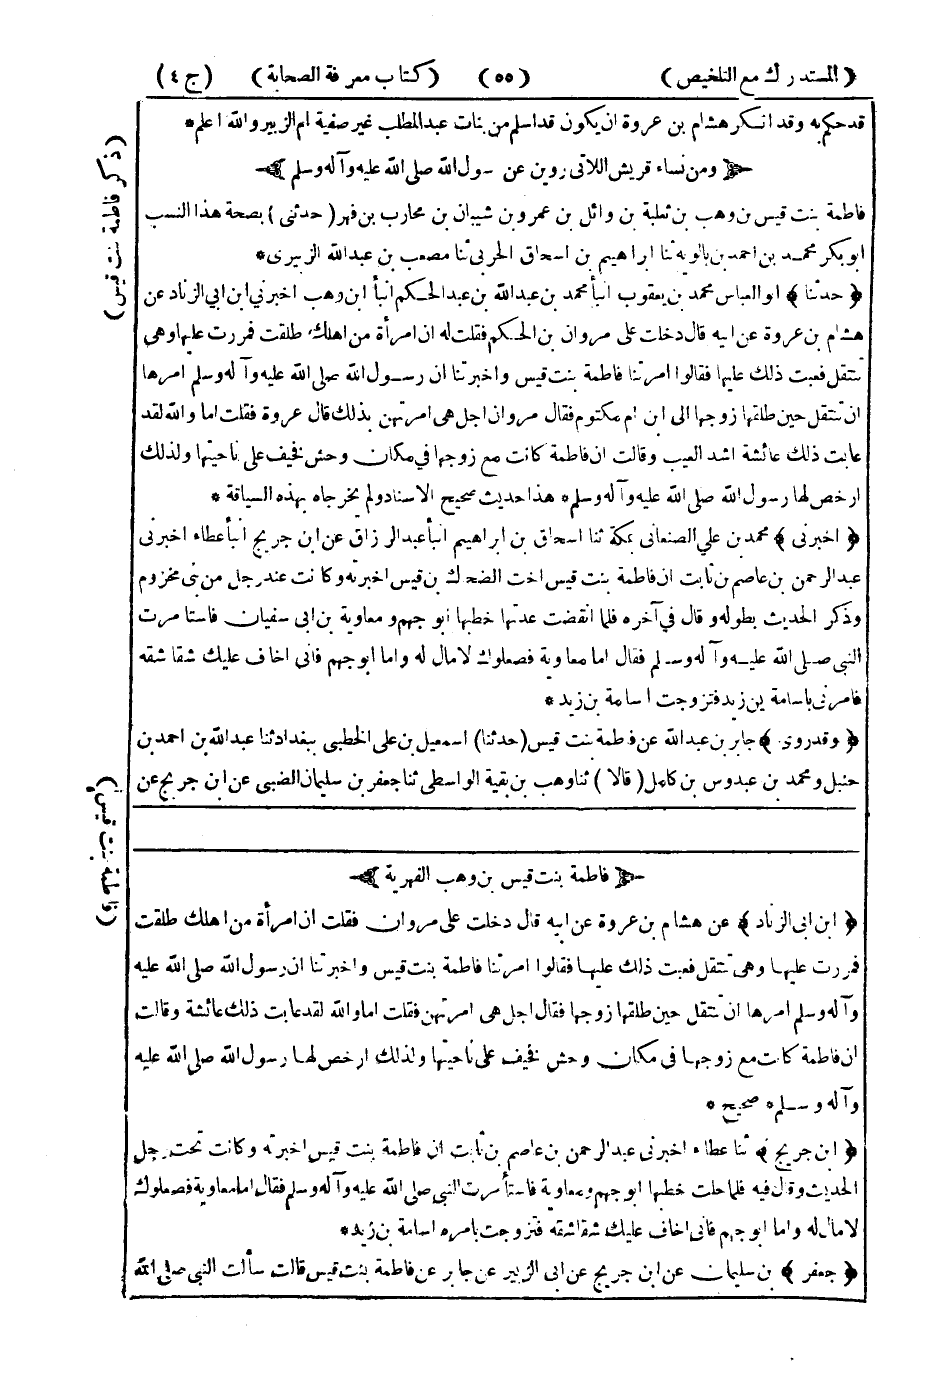 (المستدرك مع التلخيص) (٥٥) (كتاب معرفة الصحابة) (ج ٤)
قد حكم به وقد انكر هشام بن عروة ان يكون قد اسلم من بنات عبد المطلب غير صفية ام الزبير والله اعلم *
﴿ ومن نساء قريش اللاتي روين عن رسول الله صلى الله عليه وآله وسلم ﴾
فاطمة بنت قيس بن وهب بن ثعلبة بن وائل بن عمرو بن شيبان بن محارب بن فهر (حدثني) بصحة هذا النسب
ابو بكر محمد بن احمد بن بالويه ثنا ابراهيم بن اسحاق الحربي ثنا مصعب بن عبد الله الزبيري *
﴿ حدثنا ﴾ ابو العباس محمد بن يعقوب انبأ محمد بن عبد الله بن عبد الحكم انبأ ابن وهب اخبرني ابن ابي الزناد عن
هشام بن عروة عن ابيه قال دخلت على مروان بن الحكم فقلت له ان امرأة من اهلك طلقت فمررت عليها وهي
تنتقل فعبت ذلك عليها فقالوا امرتنا فاطمة بنت قيس واخبرتنا ان رسول الله صلى الله عليه وآله وسلم امرها
ان تنتقل حين طلقها زوجها الى ابن ام مكتوم فقال مروان اجل هي امرتهن بذلك قال عروة فقلت اما والله لقد
عابت ذلك عائشة اشد العيب وقالت ان فاطمة كانت مع زوجها في مكان وحش فخيف على ناحيتها ولذلك
ارخص لها رسول الله صلى الله عليه وآله وسلم * هذا حديث صحيح الاسناد ولم يخرجاه بهذه السياقة *
﴿ اخبرني ﴾ محمد بن علي الصنعاني بمكة ثنا اسحاق بن ابراهيم انبأ عبد الرزاق عن ابن جريج انبأ عطاء اخبرني
عبد الرحمن بن عاصم بن ثابت ان فاطمة بنت قيس اخت الضحاك بن قيس اخبرته وكانت عند رجل من بني مخزوم
وذكر الحديث بطوله وقال في آخره فلما انقضت عدتها خطبها ابو جهم و معاوية بن ابي سفيان فاستامرت
النبي صلى الله عليه وآله وسلم فقال اما معاوية فصعلوك لا مال له واما ابو جهم فاني اخاف عليك شقاشقه
فامرني باسامة بن زيد فتزوجت اسامة بن زيد *
﴿ وقد روى ﴾ جابر بن عبد الله عن فاطمة بنت قيس (حدثنا) اسمعيل بن علي الخطبي ببغداد ثنا عبد الله بن احمد بن
حنبل ومحمد بن عبدوس بن كامل (قالا) ثنا وهب بن بقية الواسطي ثنا جعفر بن سليمان الضبعي عن ابن جريج عن
(ذكر فاطمة بنت قيس)
﴿ فاطمة بنت قيس بن وهب الفهرية ﴾
﴿ ابن ابي الزناد ﴾ عن هشام بن عروة عن ابيه قال دخلت على مروان فقلت ان امرأة من اهلك طلقت
فمررت عليها وهي تنتقل فعبت ذلك عليها فقالوا امرتنا فاطمة بنت قيس واخبرتنا ان رسول الله صلى الله عليه
وآله وسلم امرها ان تنتقل حين طلقها زوجها فقال اجل هي امرتهن فقلت اما والله لقد عابت ذلك عائشة وقالت
ان فاطمة كانت مع زوجها في مكان وحش فخيف على ناحيتها ولذلك ارخص لها رسول الله صلى الله عليه
وآله وسلم * صحيح *
﴿ ابن جريج ﴾ ثنا عطاء اخبرني عبد الرحمن بن عاصم بن ثابت ان فاطمة بنت قيس اخبرته وكانت تحت رجل
الحديث وقال فيه فلما حلت خطبها ابو جهم ومعاوية فاستأمرت النبي صلى الله عليه وآله وسلم فقال اما معاوية فصعلوك
لا مال له واما ابو جهم فاني اخاف عليك شقاشقه فتزوجت بامره اسامة بن زيد *
﴿ جعفر ﴾ بن سليمان عن ابن جريج عن ابي الزبير عن جابر عن فاطمة بنت قيس قالت سألت النبي صلى الله
(فاطمة بنت قيس)